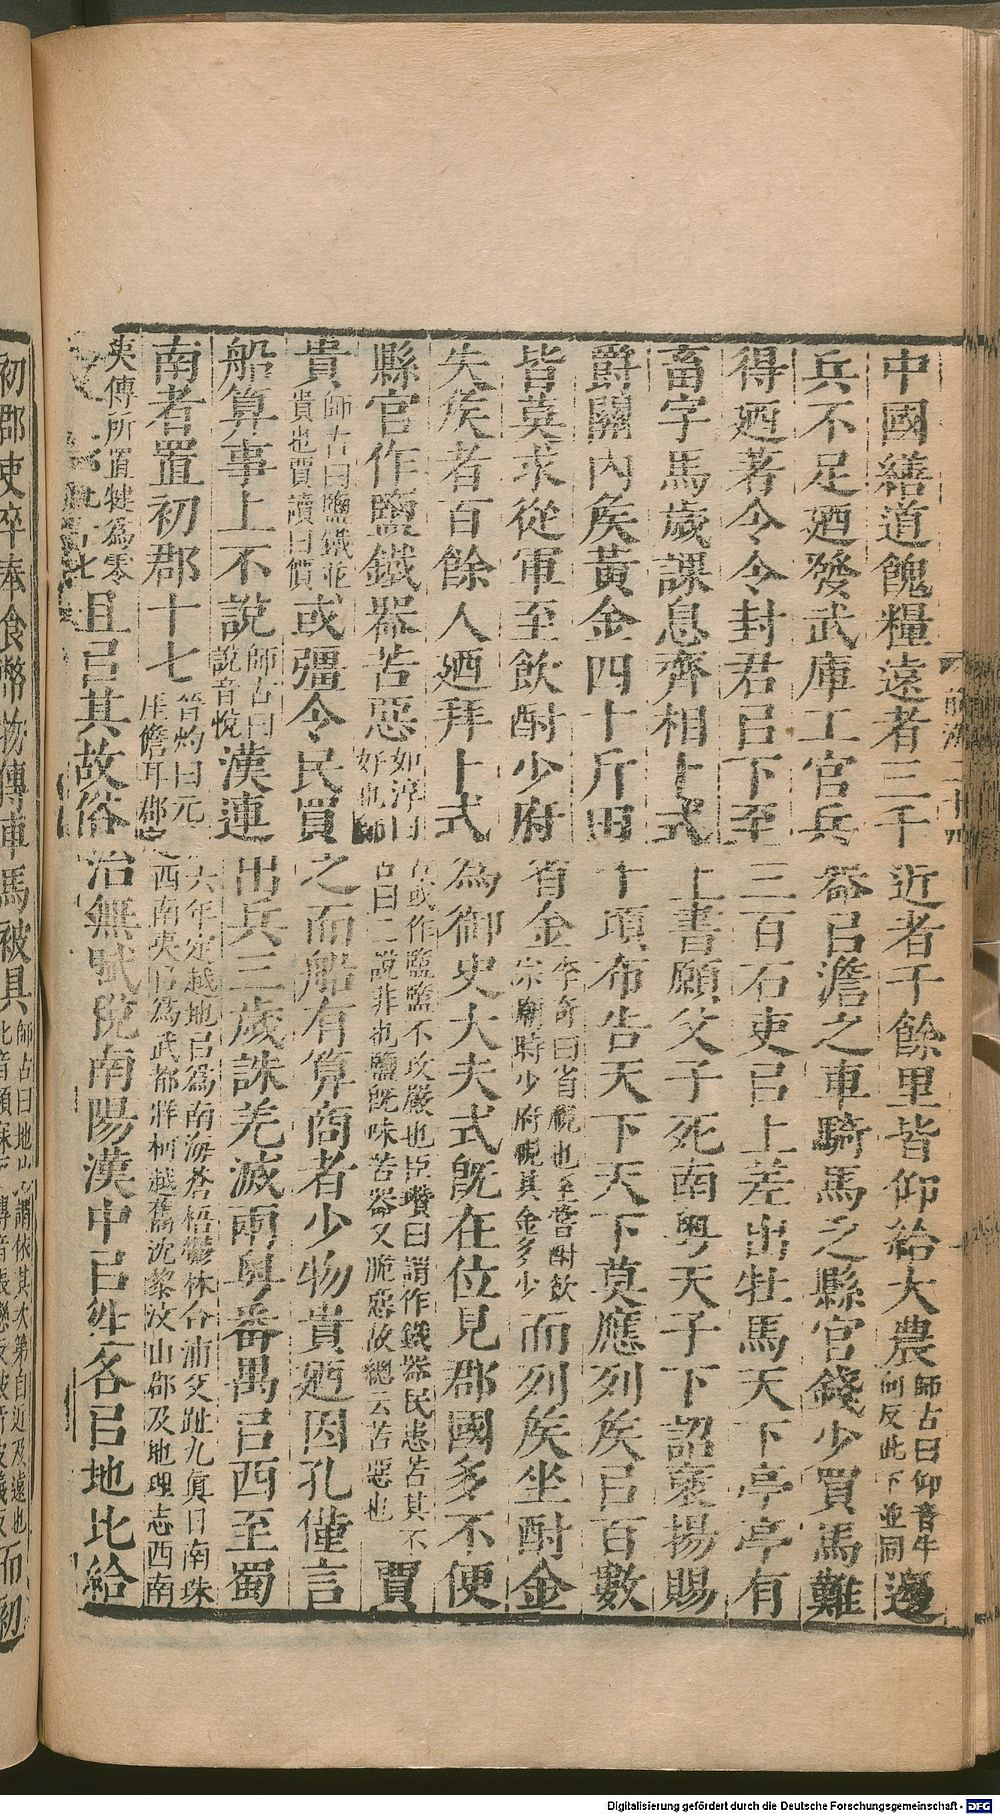 中國繕道餽糧遠者三千近者千餘里皆仰給大農師古曰仰音牛向反此下並同邊
兵不足廼發武庫工官兵器㠯澹之車騎馬乏縣官錢少買馬難
得廼著令令封君㠯下至三百石吏㠯上差出牡馬天下亭亭有
畜字馬歲課息齊相卜式上書願父子死南粤天子下詔襃揚賜
爵關內矦黃金四十斤田十頃布告天下天下莫應列矦㠯百數
皆莫求從軍至飲酎少府省金李奇曰省視也至嘗酎飲宗廟時少府視其金多少而列矦坐酎金
失矦者百餘人廼拜卜式為御史大夫式旣在位見郡國多不便
縣官作鹽鐵器苦惡如淳曰苦或作盬盬不攻嚴也臣瓚曰謂作鐵器民患苦其不好也師古曰二說非也鹽旣味苦器又脆惡故總云苦惡也賈
貴師古曰鹽鐵並貴也賈讀曰價或彊令民買之而船有算商者少物貴廼因孔僅言
船算事上不說師古曰說音悅漢連出兵三歲誅羌滅兩粤番禺㠯西至蜀
南者置初郡十七晉灼曰元六年定越地㠯為南海蒼梧鬱林合浦交趾九眞日南珠厓儋耳郡定西南夷㠯為武都牂柯越巂沈黎汶山郡及地理志西南
夷傳所置犍為零且㠯其故俗治無賦稅南陽漢中㠯往各㠯地比給
初郡吏卒奉食幣物傳車馬被具而初
Digitalisierung gefördert durch die Deutsche Forschungsgemeinschaft - DFG